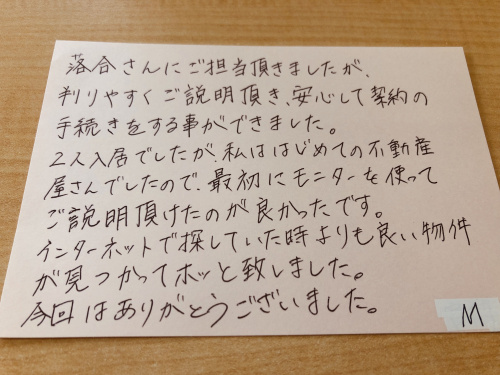 落合さんにご担当頂きましたが、
判りやすくご説明頂き、安心して契約の
手続きをする事ができました。
2人入居でしたが、私ははじめての不動産
屋さんでしたので、最初にモニターを使って
ご説明頂けたのが良かったです。
インターネットで探していた時よりも良い物件
が見つかってホッと致しました。
今回はありがとうございました。
M